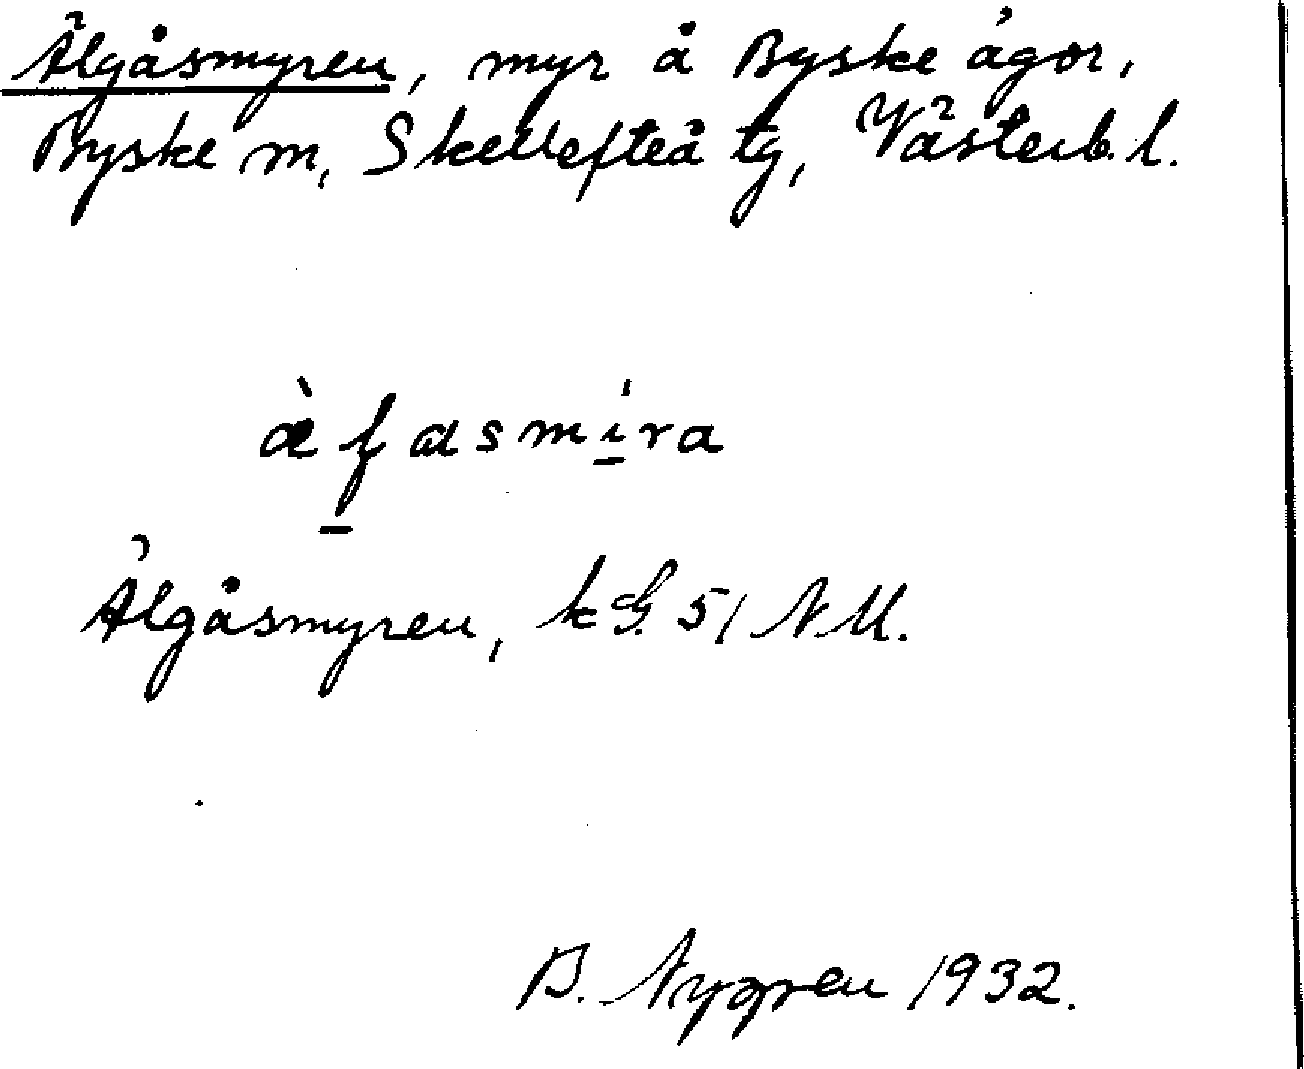 Älgåsmyren, myr å Byske ägor,
Byske sn, Skellefteå tg, Västerb. l.
Älgåsmyren, kG. 51 NM.
B. Nygren 1932.